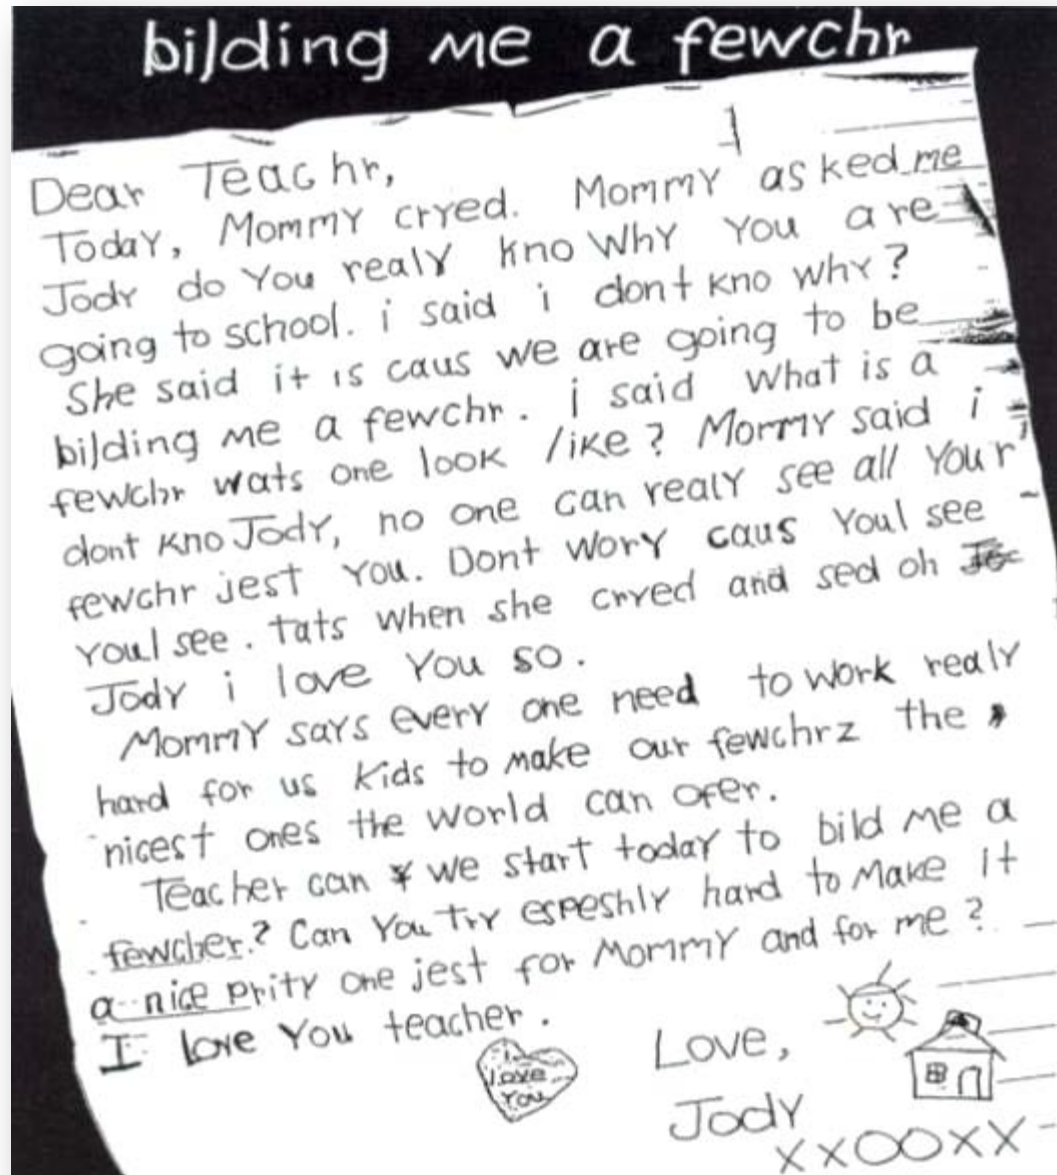 bilding me a fewchr
Dear Teachr,
Today, Mommy cryed. Mommy asked me
Jody do You realy kno Why You are
going to school. i said i dont kno why?
She said it is caus we are going to be
bilding me a fewchr. i said what is a
fewchr wats one look like? Mommy said i
dont kno Jody, no one can realy see all Your
fewchr jest You. Dont wory caus Youl see
Youl see. tats when she cryed and sed oh
Jody i love You so.
Mommy says every one need to work realy
hard for us kids to make our fewchrz the
nicest ones the world can ofer.
Teacher can we start today to bild me a
fewcher? Can You Try espeshly hard to make it
a nice prity one jest for Mommy and for me?
I love You teacher.
i
love
You
Love,
Jody
XXOOXX